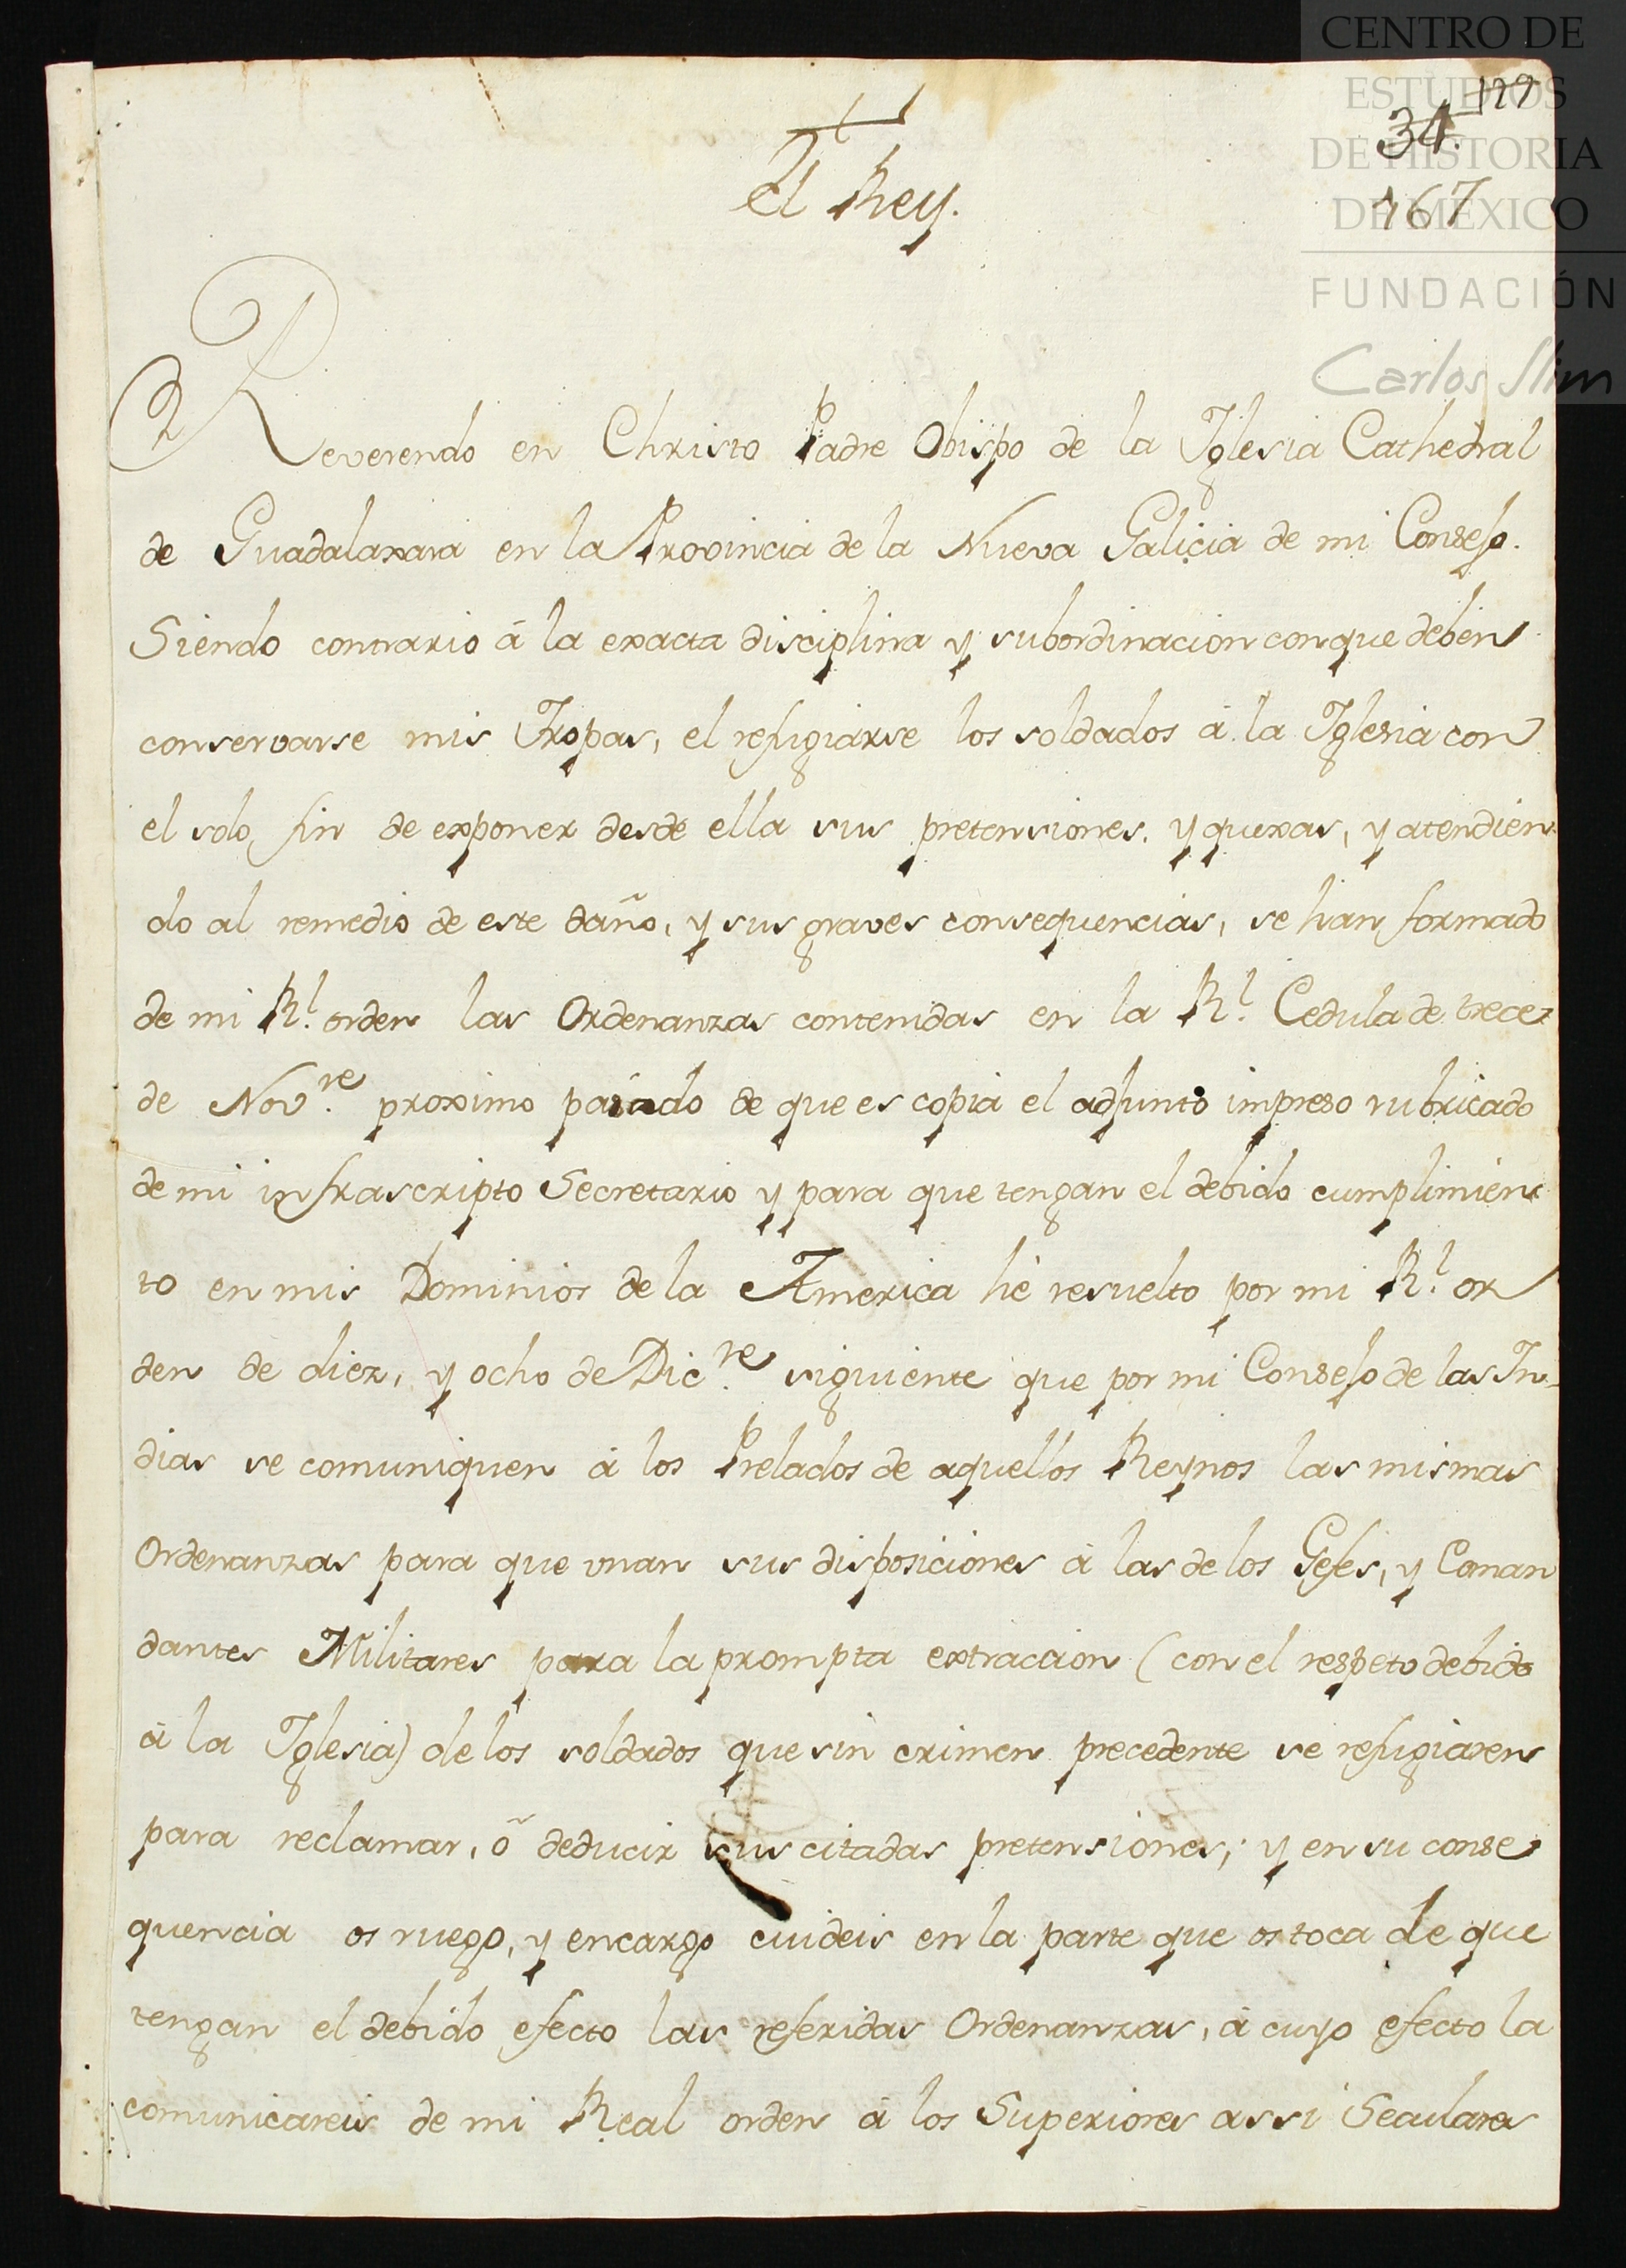 CENTRO DE
ESTUDIOS
DE HISTORIA
DE MÉXICO
FUNDACIÓN
Carlos Slim
129
34.
167
El Rey.
Reverendo en Christo Padre Obispo de la Yglesia Cathedral
de Guadalaxara en la Provincia de la Nueva Galicia de mi Consejo.
Siendo contrario á la exacta disciplina y subordinacion con que deben
conservarse mis Tropas, el refugiarse los soldados á la Yglesia con
el solo fin de exponer desde ella sus pretensiones, y quexas, y atendien
do al remedio de este daño, y sus graves consequencias, se han formado
de mi Rl. orden las Ordenanzas contenidas en la Rl. Cedula de trece
de Novre. proximo pasado de que es copia el adjunto impreso rubricado
de mi infrascripto Secretario y para que tengan el debido cumplimien
to en mis Dominios de la America hé resuelto por mi Rl. or
den de diez, y ocho de Dicre. siguiente que por mi Consejo de las In-
dias se comuniquen á los Prelados de aquellos Reynos las mismas
Ordenanzas para que unan sus disposiciones á las de los Gefes, y Coman
dantes Militares para la prompta extraccion (con el respeto debido
á la Yglesia) de los soldados que sin crimen precedente se refugiaren
para reclamar, ó deducir sus citadas pretensiones; y en su conse
quencia os ruego, y encargo cuideis en la parte que os toca de que
tengan el debido efecto las referidas Ordenanzas, á cuyo efecto la
comunicareis de mi Real orden á los Superiores assi Seculares